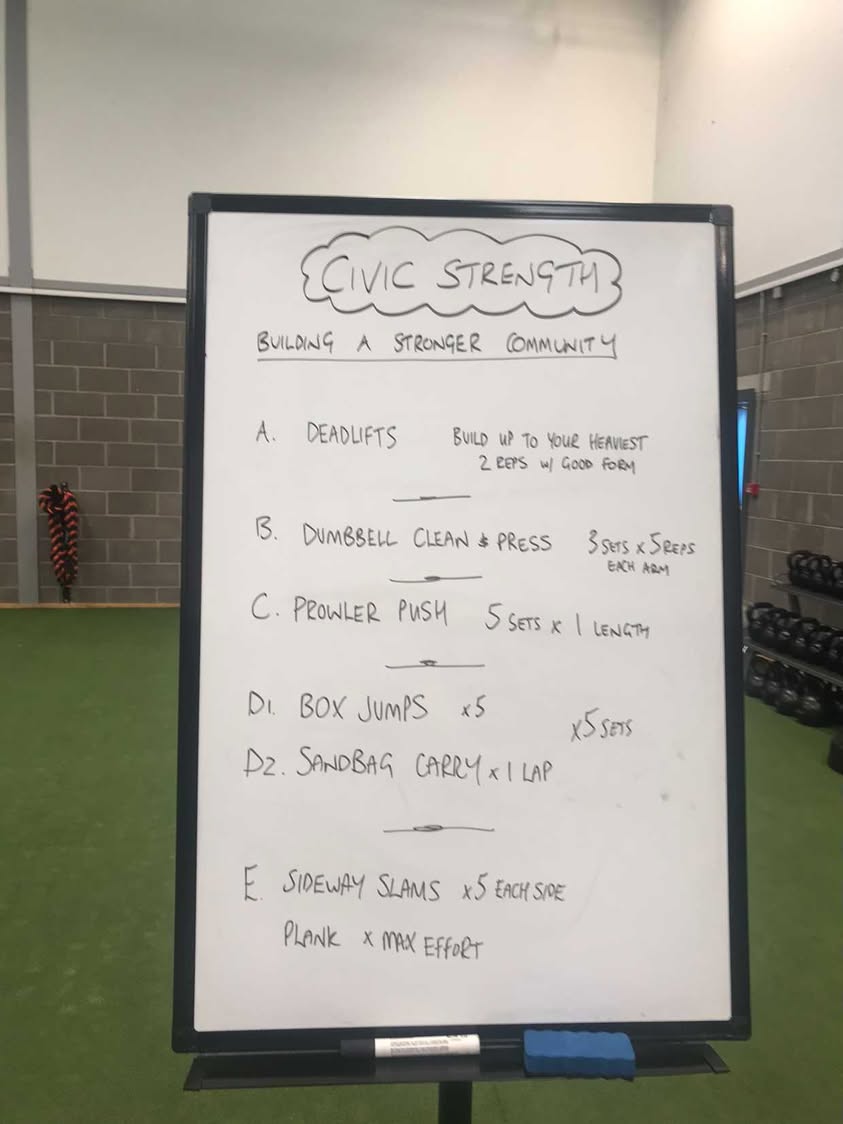 CIVIC STRENGTH
BUILDING A STRONGER COMMUNITY
A. DEADLIFTS BUILD UP TO YOUR HEAVIEST
2 REPS W/ GOOD FORM
B. DUMBBELL CLEAN & PRESS 3 SETS x 5 REPS
EACH ARM
C. PROWLER PUSH 5 SETS x 1 LENGTH
D1. BOX JUMPS x5
x5 SETS
D2. SANDBAG CARRY x 1 LAP
E. SIDEWAY SLAMS x5 EACH SIDE
PLANK x MAX EFFORT